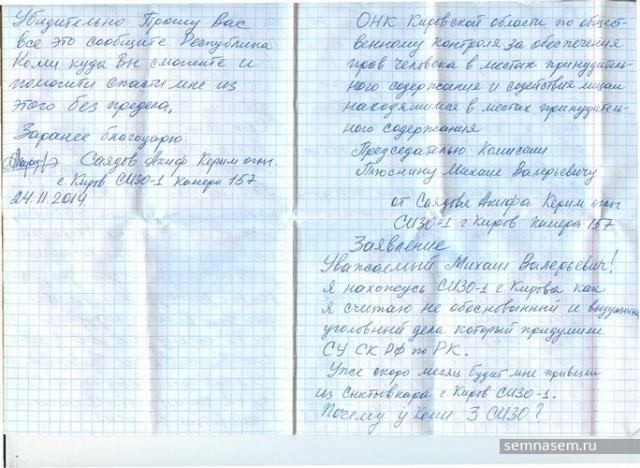 ОНК Кировской области по общест-
венному контроля за обеспечения
прав человека в местах принудитель-
ного содержания и содействия лицам
находящимися в местах принудитель-
ного содержания
Председателю Комиссии
Плюснину Михаил Валерьевичу
от Саядова Акифа Керим оглы
СИЗО-1 г. Киров Камера 157
Заявление
Уважаемый Михаил Валерьевич!
Я нахожусь СИЗО-1 г Кирова как
я считаю не обоснованный и
уголовный дела который придумили
СУ СК РФ по РК.
Уже скоро месяц будит мне привезли
из Сыктывкара г Киров СИЗО-1.
Почему у Коми 3 СИЗО?
Убидительно Прошу Вас
все это сообщите Республика
Коми куда Вы сможете и
помогити спасти мне из
этого без предела.
Заранее благодарю.
Саядов Акиф Керим оглы.
г. Киров СИЗО-1 Камера 157
24.11.2014
semnasem.ru